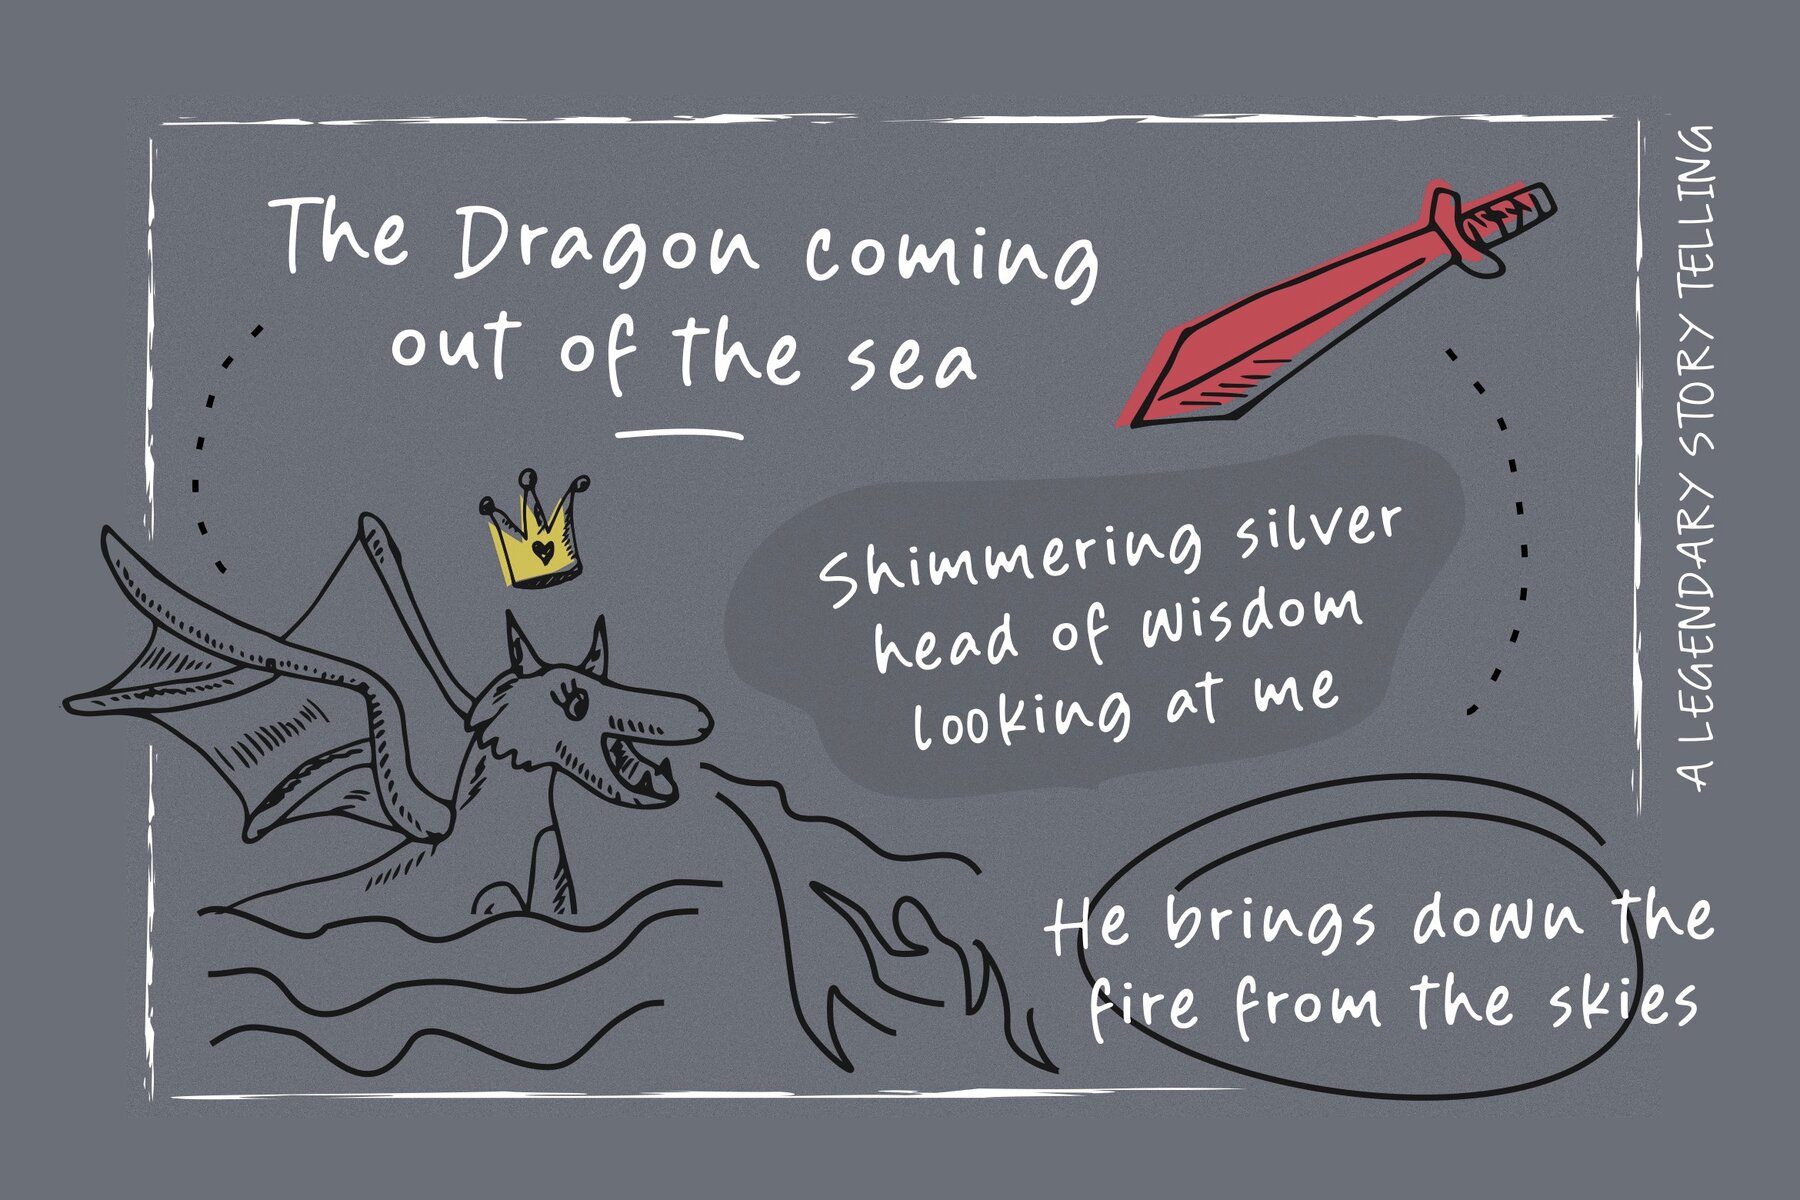 The Dragon coming
out of the sea
Shimmering silver
head of wisdom
looking at me
He brings down the
fire from the skies
A LEGENDARY STORY TELLING